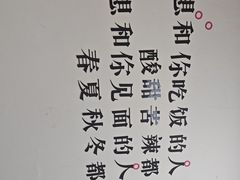 想和你吃饭的人
酸甜苦辣都
想和你见面的人
春夏秋冬都